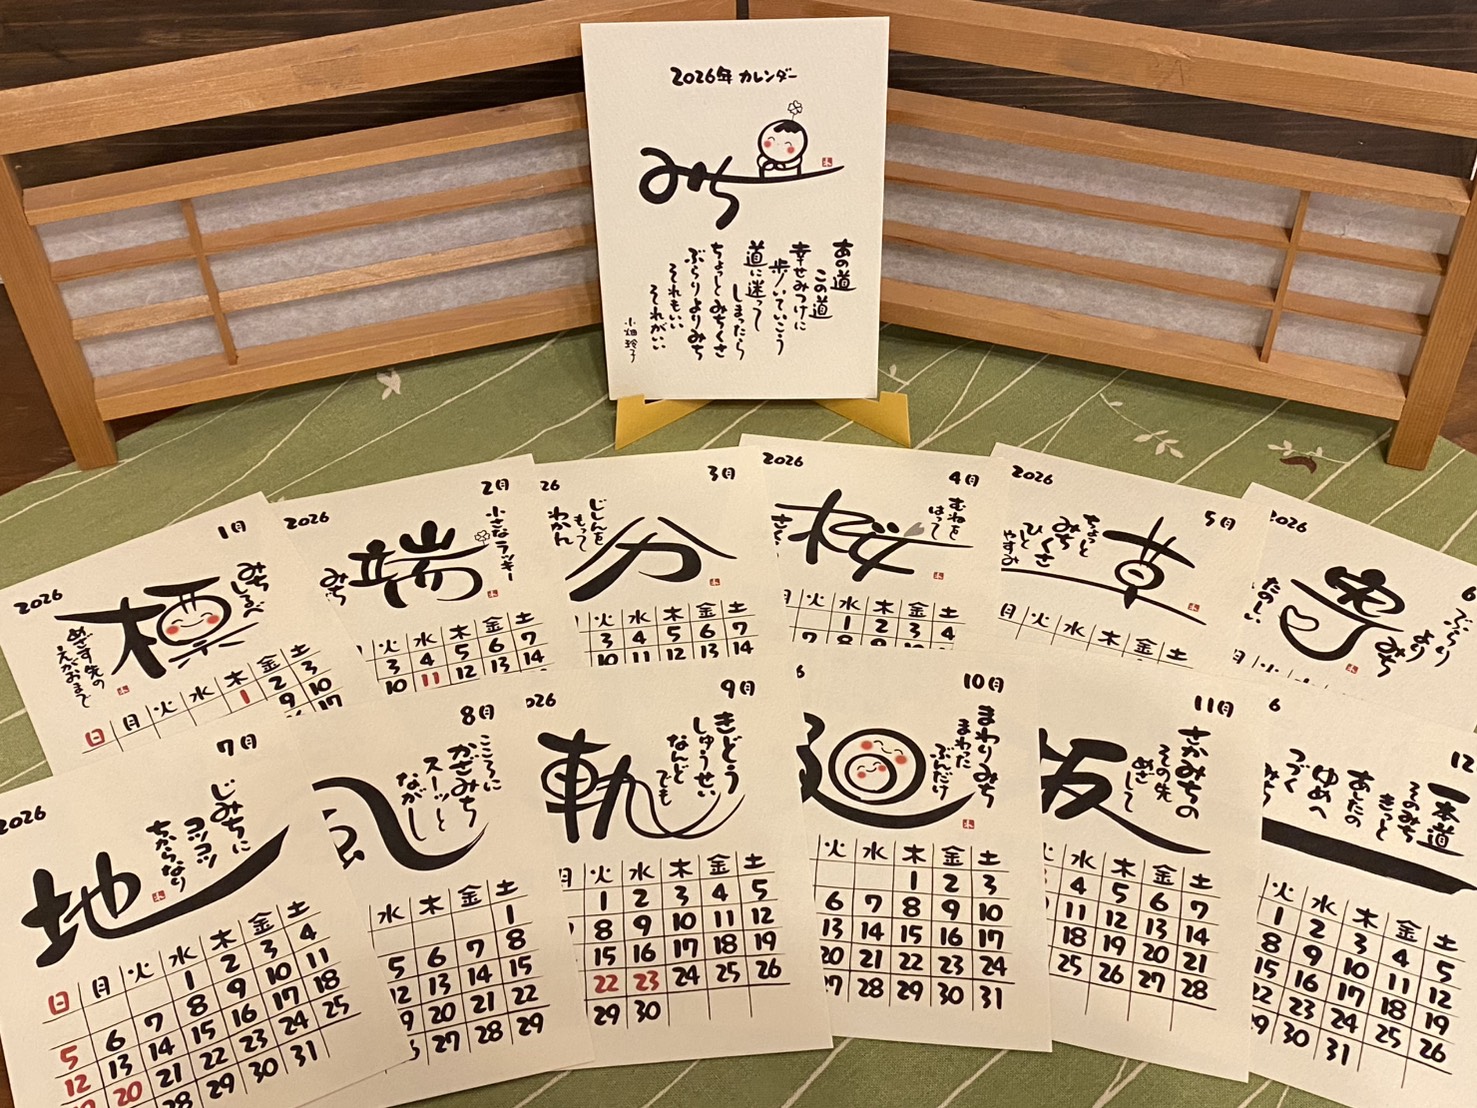 2026年 カレンダー
みち
あの道
この道
幸せみつけに
歩いていこう
道に迷って
しまったら
ちょっとみちくさ
ぶらりよりみち
それもいい
それがいい
小畑玲子
2026
1月
標
みちしるべ
めざす先の
えがおまで
日 月 火 水 木 金 土
1 2 3
9 10
16 17
2026
2月
端
小さなラッキー
みち
火 水 木 金 土
3 4 5 6 7
10 11 12 13 14
26
3月
分
じしんを
もって
わかん
火 水 木 金 土
3 4 5 6 7
10 11 12 13 14
2026
4月
桜
むねを
はって
さく
月 火 水 木 金 土
1 2 3 4
7 8 9 10
2026
5月
草
ちょっと
みちくさ
ひと
やすみ
月 火 水 木 金 土
2026
6
寄
ぶらり
より
みち
たのしい
日 月 火
2026
7月
地
じみちに
コツコツ
ちからなり
日 月 火 水 木 金 土
1 2 3 4
5 6 7 8 9 10 11
12 13 14 15 16 17 18
20 21 22 23 24 25
28 29 30 31
8月
風
こころに
かざみち
スーッと
ながし
水 木 金 土
1
5 6 7 8
12 13 14 15
19 20 21 22
27 28 29
026
9月
軌
きどう
しゅうせい
なんど
でも
月 火 水 木 金 土
1 2 3 4 5
8 9 10 11 12
15 16 17 18 19
22 23 24 25 26
29 30
6
10月
廻
まわりみち
まわった
ぶんだけ
火 水 木 金 土
1 2 3
6 7 8 9 10
13 14 15 16 17
20 21 22 23 24
27 28 29 30 31
11月
坂
さかみちの
その先
めざして
火 水 木 金 土
4 5 6 7
11 12 13 14
18 19 20 21
25 26 27 28
6
12
一本道
そのみち
きっと
あしたの
ゆめへ
つづく
みち
火 水 木 金 土
1 2 3 4 5
8 9 10 11 12
15 16 17 18 19
22 23 24 25 26
29 30 31